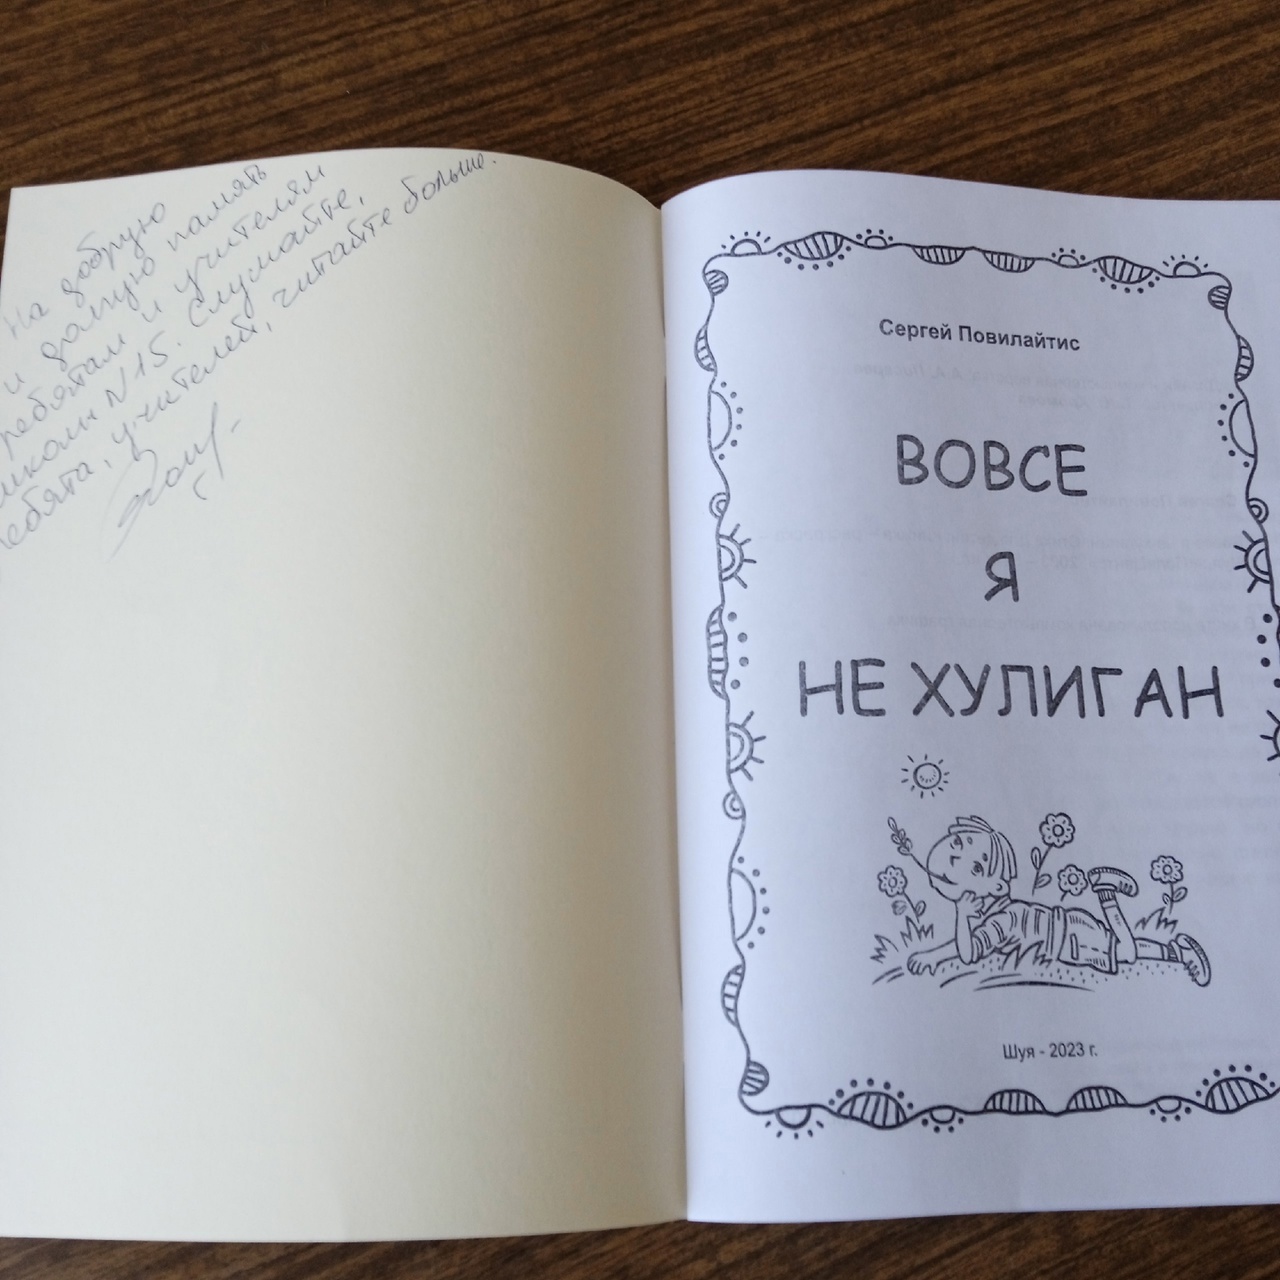 На добрую
и долгую память
ребятам и учителям
школы N 15. Слушайте,
ребята, учителей, читайте больше.
Сергей Повилайтис
ВОВСЕ
Я
НЕ ХУЛИГАН
Шуя - 2023 г.